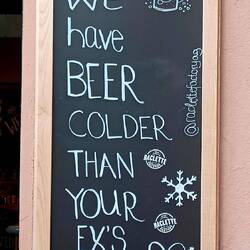 WE
have
BEER
COLDER
THAN
YOUR
EX'S
@raclettefactory_ag
RACLETTE
RACLETTE